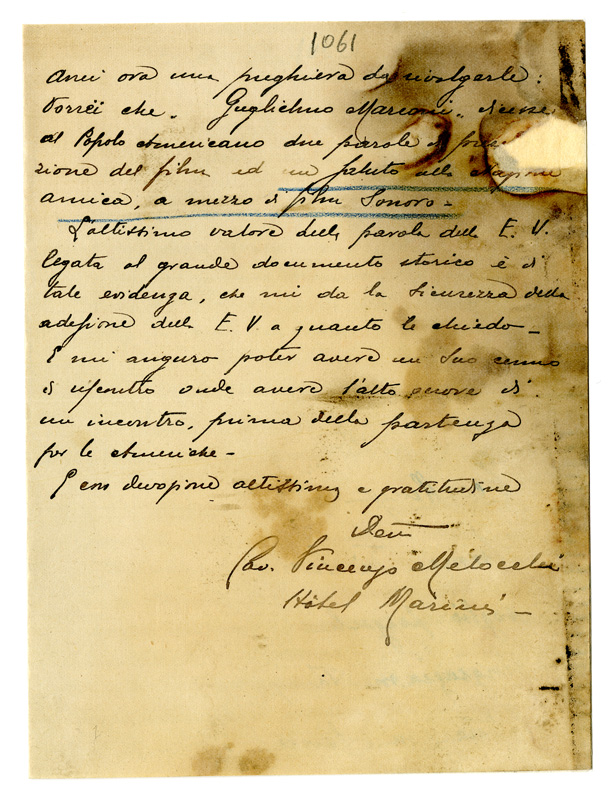 1061
Anzi ora una preghiera da rivolgerle:
Vorrei che "Guglielmo Marconi" dicesse
al Popolo Americano due parole di
zione del film ed un saluto alla Nazione
amica, a mezzo di film sonoro -
L'altissimo valore della parola della E. V.
legata al grande documento storico è di
tale evidenza, che mi da la sicurezza della
adesione della E. V. a quanto le chiedo -
E mi auguro poter avere un Suo cenno
di riscontro onde avere l'alto onore di
un incontro, prima della partenza
per le Americhe -
E con devozione altissima e gratitudine
Dev
Cav. Vincenzo Melocchi
Hôtel Marini -